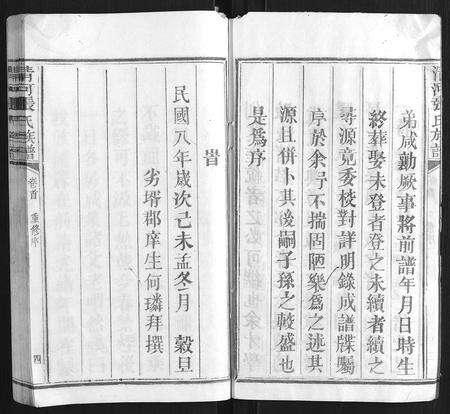 清河張氏族譜
弟咸勷厥事將前譜年月日時生
終葬娶未登者登之未續者續之
尋源竟委校對詳明錄成譜牒屬
序於余予不揣固陋樂爲之述其
源且併卜其後嗣子孫之較盛也
是爲序
旹
民國八年歲次己未孟冬月 穀旦
劣壻郡庠生何璘拜撰
清河張氏族譜
卷首
重修序
四